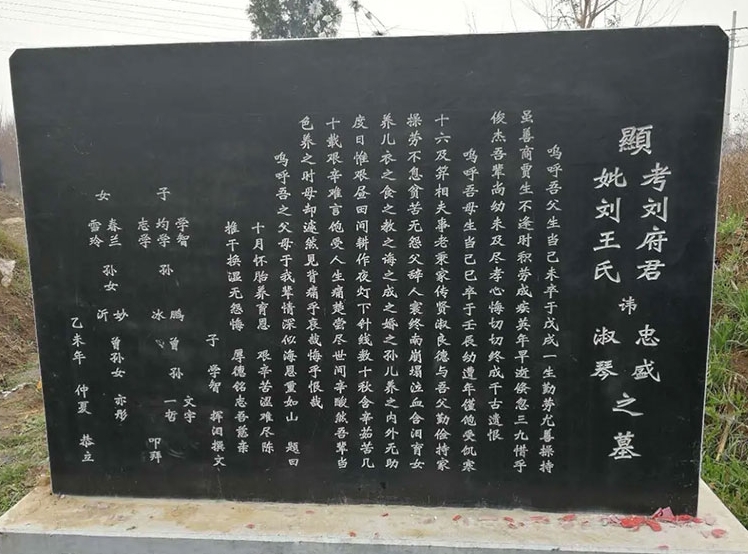 顯考刘府君讳忠盛之墓
妣刘王氏淑琴
呜呼吾父生当己未卒于戊戌一生勤劳尤善操持
虽善商贾生不逢时积劳成疾英年早逝倏忽三九惜乎
俊杰吾辈尚幼未及尽孝心悔切切终成千古遗恨
呜呼吾母生当己巳卒于壬辰幼遭年馑饱受饥寒
十六及笄相夫事老秉家传贤淑良德与吾父勤俭持家
操劳不息贫苦无怨父辞人寰终南崩塌泣血含泪育女
养儿衣之食之教之诲之成之婚之孙儿养之内外无助
度日惟艰昼田间耕作夜灯下针线数十秋含辛茹苦几
十载艰辛难言饱受人生痛楚尝尽世间辛酸然吾辈当
色养之时母却遽然见背痛乎哀哉悔乎恨哉
呜呼吾之父母于我辈情深似海恩重如山 题曰
十月怀胎养育恩 艰辛苦涩难尽陈
推干换湿无怨悔 厚德铭志吾慈亲
子 学智 挥泪撰文
子 学智 均学 志学 孙 鹏 冰 曾孙 文宇 一哲 叩拜
女 春兰 雪玲 孙女 妙 沂 曾孙女 亦彤
乙未年 仲夏 恭立